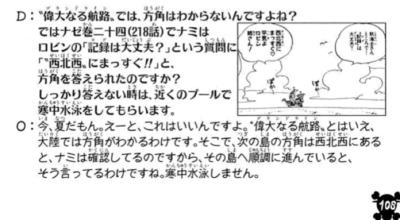 D:〝偉大なる航路〟では、方角はわからないんですよね?
ではナゼ巻二十四(218話)でナミは
ロビンの「記録は大丈夫?」という質問に
「〝西北西〟にまっすぐ!!」と、
方角を答えられたのですか?
しっかり答えない時は、近くのプールで
寒中水泳をしてもらいます。
O:今、夏だもん。えーと、これはいいんですよ。〝偉大なる航路〟とはいえ、
大陸では方角がわかるわけです。そこで、次の島の方角は西北西にある
と、ナミは確認してるのですから、その島へ順調に進んでいると、
そう言ってるわけですね。寒中水泳しません。
108